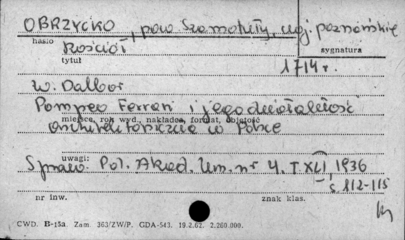 OBRZYCKO, pow. Szamotuły, woj. poznańskie
hasło
Kościół
sygnatura
tytuł
1714 r.
W. Dalbor
Pompeo Ferrari i jego działalność
miejsce, rok wyd., nakładca, format, objętość
architektoniczna w Polsce
uwagi:
Spraw. Pol. Akad. Um. nr 4. T XLI, 1936
s. 112-115
nr inw.
znak klas.
CWD. B-15a. Zam. 363/ZW/P. GDA-543. 19.2.62. 2.260.000.